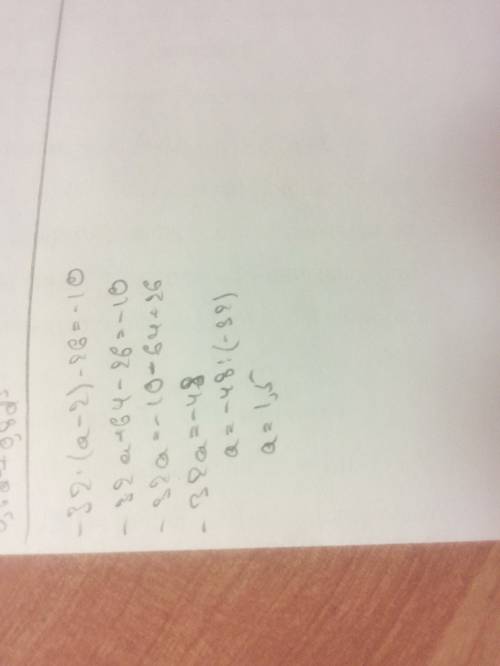 -32·(a-2)-26=-10
-32a+64-26=-10
-32a=-10-64+26
-32a=-48
a=-48:(-32)
a=1,5